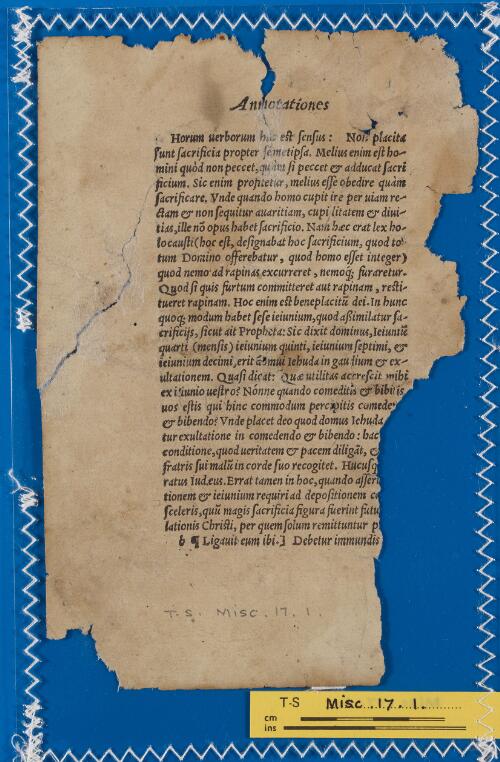 Annotationes
Horum uerborum hic est sensus: Non placita
sunt sacrificia propter semetipsa. Melius enim est ho-
mini quòd non peccet, quàm si peccet & adducat sacri
ficium. Sic enim profitetur, melius esse obedire quàm
sacrificare. Vnde quando homo cupit ire per uiam re-
ctam & non sequitur auaritiam, cupi litatem & diui-
tias, ille nõ opus habet sacrificio. Nam hæc erat lex ho-
locausti (hoc est, designabat hoc sacrificium, quod to-
tum Domino offerebatur, quod homo esset integer)
quod nemo ad rapinas excurreret, nemoq; furaretur.
Quod si quis furtum committeret aut rapinam, resti-
tueret rapinam. Hoc enim est beneplacitũ dei. In hunc
quoq; modum habet sese ieiunium, quod aßimilatur sa-
crificijs, sicut ait Propheta: Sic dixit dominus, Ieiuniũ
quarti (mensis) ieiunium quinti, ieiunium septimi, &
ieiunium decimi, erit domui Iehuda in gaudium & ex-
ultationem. Quasi dicat: Quæ utilitas accrescit mihi
ex ieiunio uestro? Nónne quando comeditis & bibitis
uos estis qui hinc commodum percipitis comede
& bibendo? Vnde placet deo quod domus Iehuda
tur exultatione in comedendo & bibendo: hac
conditione, quod ueritatem & pacem diligãt, &
fratris sui malũ in corde suo recogitet. Hucusq
ratus Iudæus. Errat tamen in hoc, quando asseri
tionem & ieiunium requiri ad depositionem
sceleris, quũ magis sacrificia figura fuerint futu
lationis Christi, per quem solum remittuntur p
b ¶ Ligauit eum ibi.] Debetur immundis
T-S. Misc. 17. 1.
T-S Misc. 17. 1.
cm
ins